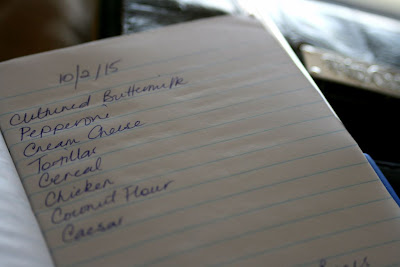 10/2/15
Cultured Buttermilk
Pepperoni
Cream Cheese
Tortillas
Cereal
Chicken
Coconut Flour
Caesar